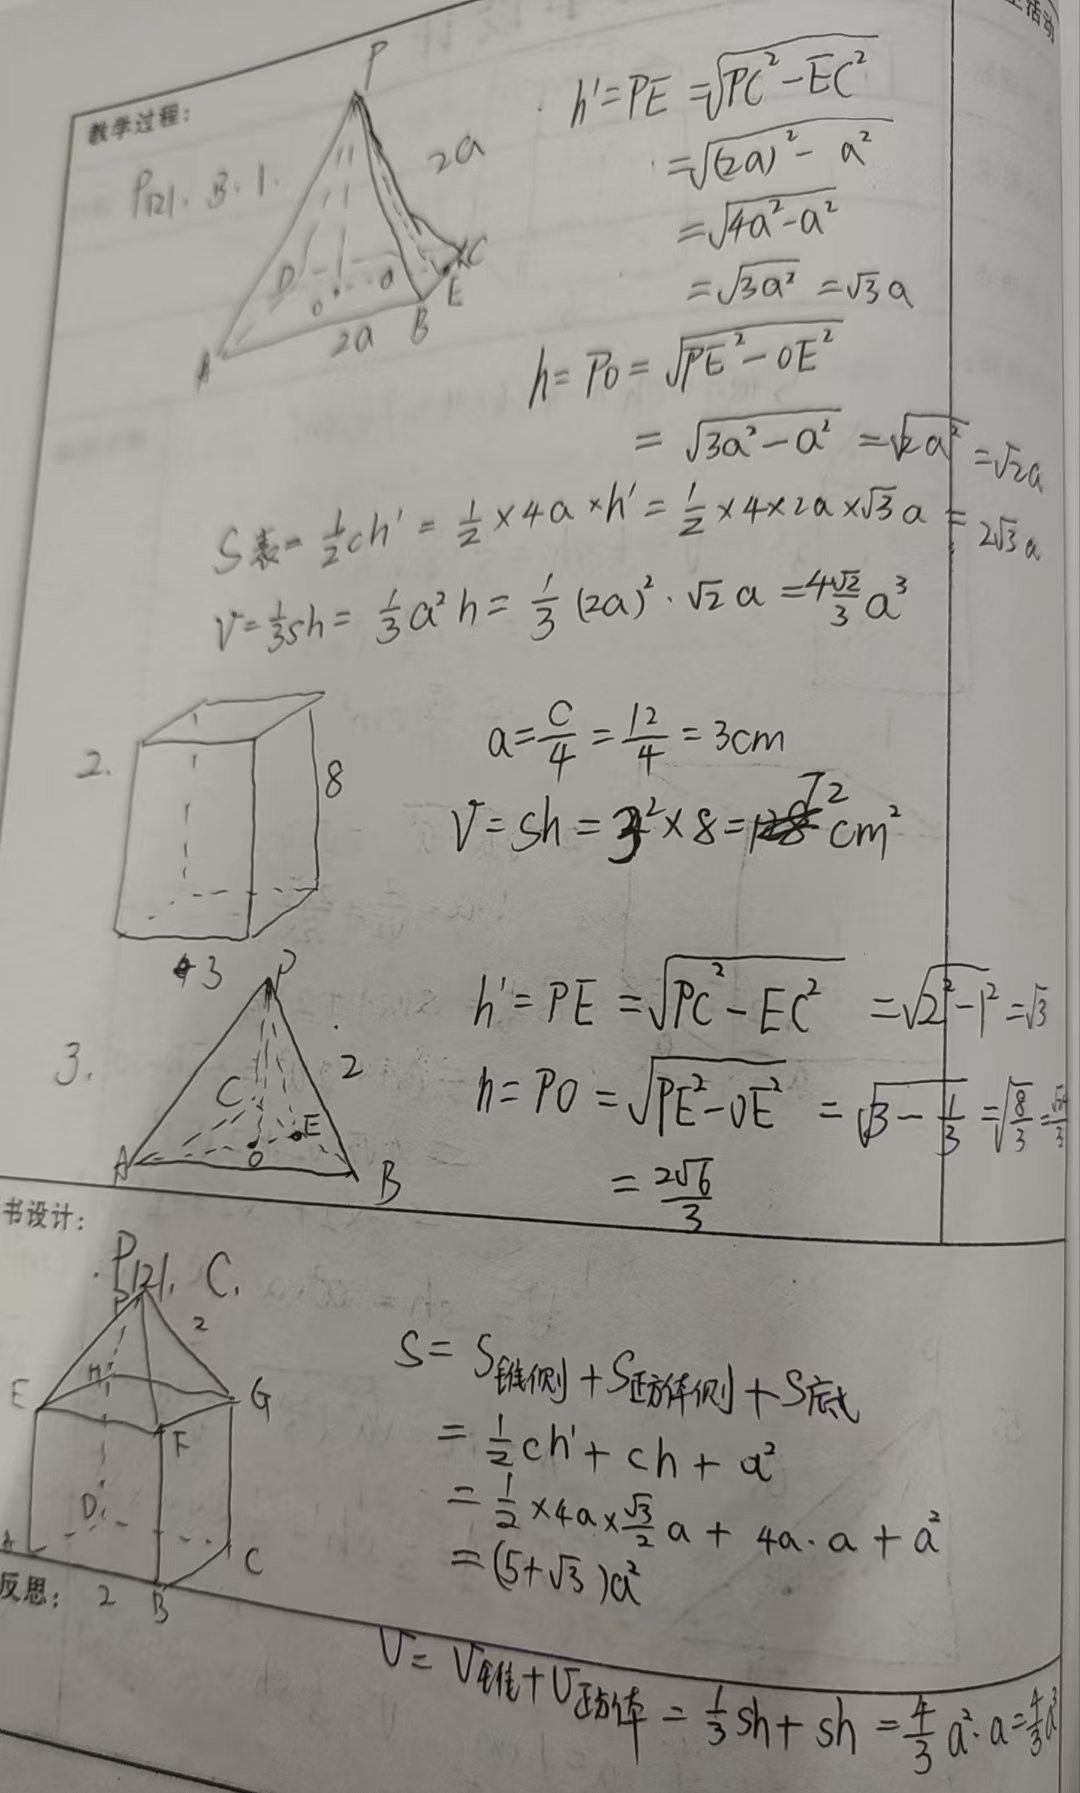 生活动
教学过程:
P121. B. 1.
P
2a
D
C
O
a
E
A
2a
B
h'=PE =√(PC²-EC²)
=√((2a)²-a²)
=√(4a²-a²)
=√(3a²) =√3a
h=PO=√(PE²-OE²)
=√(3a²-a²) =√(2a²) =√2a
S表=½ch'=½×4a×h'=½×4×2a×√3a=2√3a
V=⅓sh=⅓a²h=⅓(2a)²·√2a=4√2/3 a³
2.
8
3
a=C/4=12/4=3cm
V=Sh=3²×8=72cm²
3.
P
2
C
E
A
O
B
h'=PE=√(PC²-EC²) =√(2²-1²)=√3
h=PO=√(PE²-OE²) =√(3-1/3)=√(8/3)=
=2√6/3
书设计:
P121. C.
P
2
H
E
G
F
D
A
C
2
B
反思:
S=S锥侧+S正方体侧+S底
=½ch'+ch+a²
=½×4a×√3/2 a+4a·a+a²
=(5+√3)a²
V=V锥+V正方体=⅓sh+sh=4/3 a²·a=4/3 a³